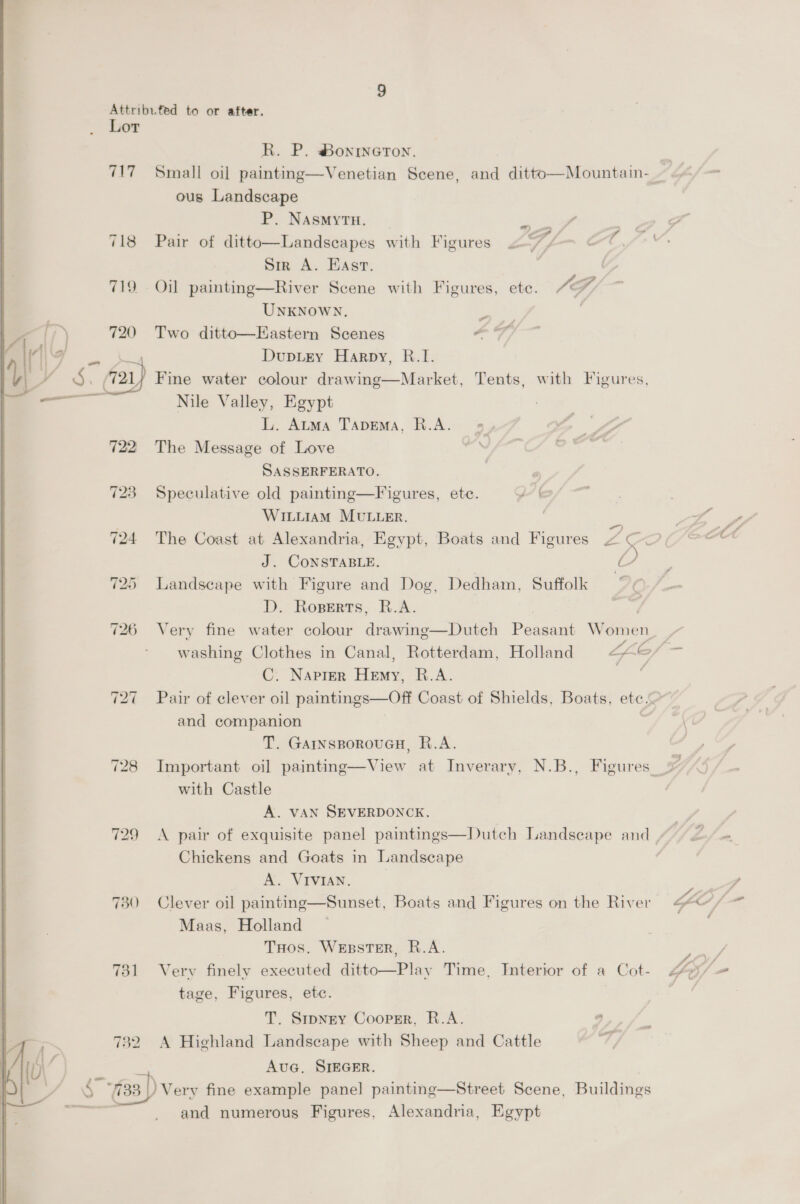 9
Attributed to or after.
Lot
R. P. Bonington.
717 Small oil painting—Venetian Scene, and ditto—Mountain-
ous Landscape
P. Nasmyth.
718 Pair of ditto—Landscapes with Figures
Sir A. East.
719 Oil painting—River Scene with Figures, etc.
Unknown.
720 Two ditto—Eastern Scenes
Dudley Harpy, R.I.
S. 721 Fine water colour drawing—Market, Tents, with Figures,
Nile Valley, Egypt
L. Alma Tadema, R.A.
722 The Message of Love
Sasserferato.
723 Speculative old painting—Figures, etc.
William Muller.
724 The Coast at Alexandria, Egypt, Boats and Figures
J. Constable.
725 Landscape with Figure and Dog, Dedham, Suffolk
D. Roberts, R.A.
726 Very fine water colour drawing—Dutch Peasant Women
washing Clothes in Canal, Rotterdam, Holland
C. Napier Hemy, R.A.
727 Pair of clever oil paintings—Off Coast of Shields, Boats, etc.
and companion
T. Gainsborough, R.A.
728 Important oil painting—View at Inverary, N.B., Figures
with Castle
A. van Severdonck.
729 A pair of exquisite panel paintings—Dutch Landscape and
Chickens and Goats in Landscape
A. Vivian.
730 Clever oil painting—Sunset, Boats and Figures on the River
Maas, Holland
Thos. Webster, R.A.
731 Very finely executed ditto—Play Time, Interior of a Cot-
tage, Figures, etc.
T. Sidney Cooper, R.A.
732 A Highland Landscape with Sheep and Cattle
Aug. Sieger.
S 733 Very fine example panel painting—Street Scene, Buildings
and numerous Figures, Alexandria, Egypt